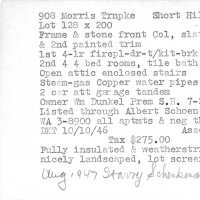 908 Morris Trnpke Short Hil
Lot 128 x 200
Frame & stone front Col, sla
& 2nd painted trim
1st 4-lr firepl-dr-t/kit-brk
2nd 4 4 bed rooms, tile bath
Open attic enclosed stairs
Steam-gas Copper water pipes
2 car att garage tandem
Owner Wm Dunkel Prem S.H. 7-
Listed through Albert Schoen
WA 3-8900 all aptmts & neg th
DET 10/10/46 Ass
Tax $275.00
Fully insulated & weatherstr
nicely landscaped, lot screen
Aug 1947